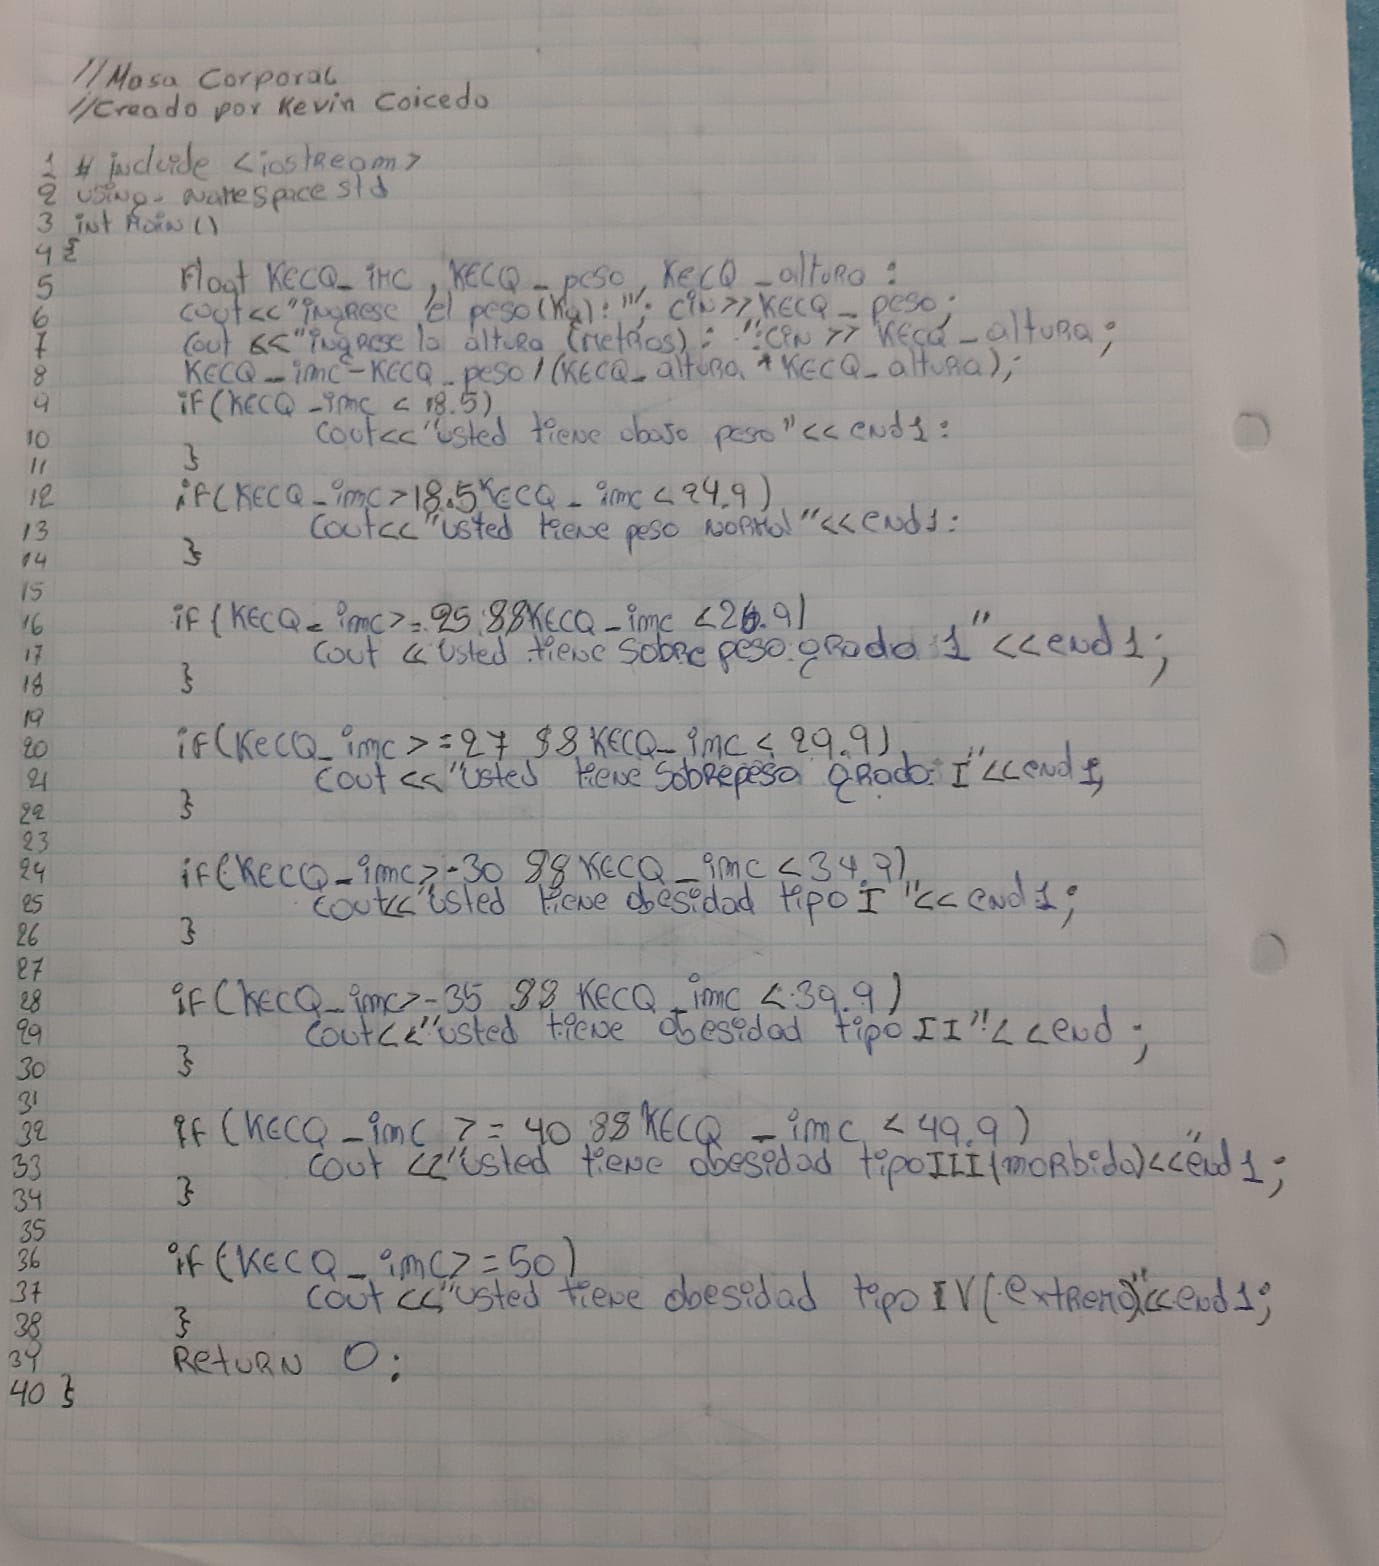 //Masa Corporal
//Creado por Kevin Coicedo
1 # include <iostream>
2 using- namespace std
3 int main()
4 {
5 Float KECQ_imc, KECQ_peso, KECQ_altura:
6 cout<<"ingrese el peso(Kg):"; cin>>KECQ_peso;
7 cout <<"ingrese la altura (metros): ":cin >> KECQ_altura;
8 KECQ_imc-KECQ_peso/(KECQ_altura * KECQ_altura);
9 if(KECQ_imc < 18.5)
10 cout<<"usted tiene abajo peso"<< end1:
11 }
12 if(KECQ_imc>18.5KECQ_imc<24.9)
13 cout<<"usted tiene peso normal"<<end1:
14 }
15
16 if(KECQ_imc>=25.88KECQ_imc <26.9)
17 cout <<usted tiene sobrepeso grado 1"<<end1;
18 }
19
20 if(KECQ_imc>=27 88 KECQ_imc< 29.9)
21 cout <<"usted tiene sobrepeso grado I"<<end1;
22 }
23
24 if(KECQ_imc>-30 88 KECQ_imc <34.9)
25 cout<<"usted tiene obesidad tipo I "<< end1;
26 }
27
28 if(KECQ_imc>-35 88 KECQ_imc <.39.9)
29 cout<<"usted tiene obesidad tipo II"<<end;
30 }
31
32 if (KECQ_imc >=40 88 KECQ_imc <49.9)
33 cout <<"usted tiene obesidad tipo III(morbida)<<"end1;
34 }
35
36 if(KECQ_imc>=50)
37 cout <<"usted tiene obesidad tipo IV(extremo)"<<end1;
38 }
39 Return 0;
40 }